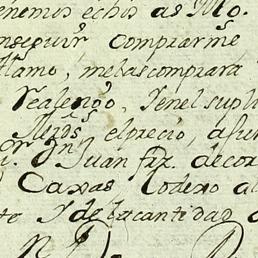 enemos echis as Mo.
nseguir Comprarme
llamo, melascomprara
Realengo, Yenel supli
elprecio, afun
Juan fiz. decoz
Caxas Todexo a
to Y de lacantidad